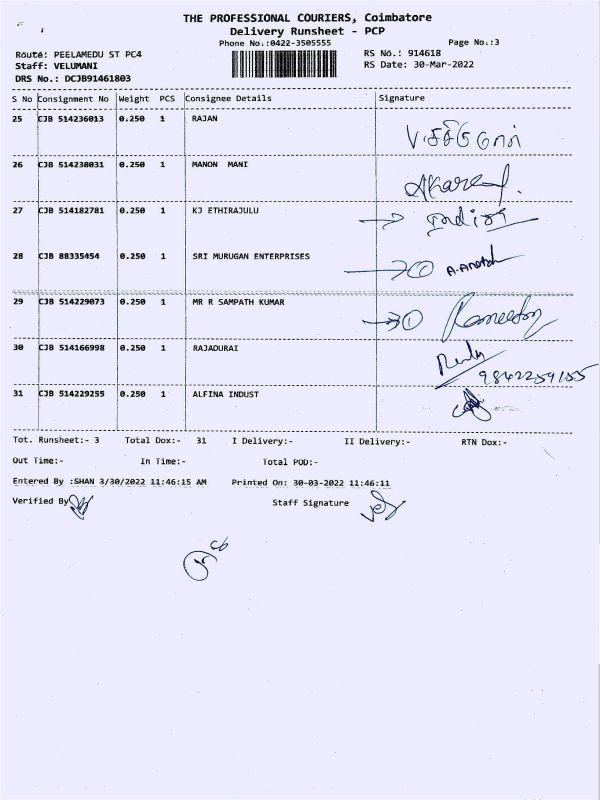 THE PROFESSIONAL COURIERS, Coimbatore
Delivery Runsheet - PCP
Phone No.:0422-3505555
Page No.:3
Route: PEELAMEDU ST PC4
RS No.: 914618
Staff: VELUMANI
RS Date: 30-Mar-2022
DRS No.: DCJB91461803
S No Consignment No Weight PCS Consignee Details Signature
25 CJB 514236013 0.250 1 RAJAN
26 CJB 514238031 0.250 1 MANON MANI
27 CJB 514182781 0.250 1 KJ ETHIRAJULU
28 CJB 88335454 0.250 1 SRI MURUGAN ENTERPRISES
29 CJB 514229073 0.250 1 MR R SAMPATH KUMAR
30 CJB 514166998 0.250 1 RAJADURAI
9842259155
31 CJB 514229255 0.250 1 ALFINA INDUST
Tot. Runsheet:- 3 Total Dox:- 31 I Delivery:- II Delivery:- RTN Dox:-
Out Time:- In Time:- Total POD:-
Entered By :SHAN 3/30/2022 11:46:15 AM Printed On: 30-03-2022 11:46:11
Verified By Staff Signature